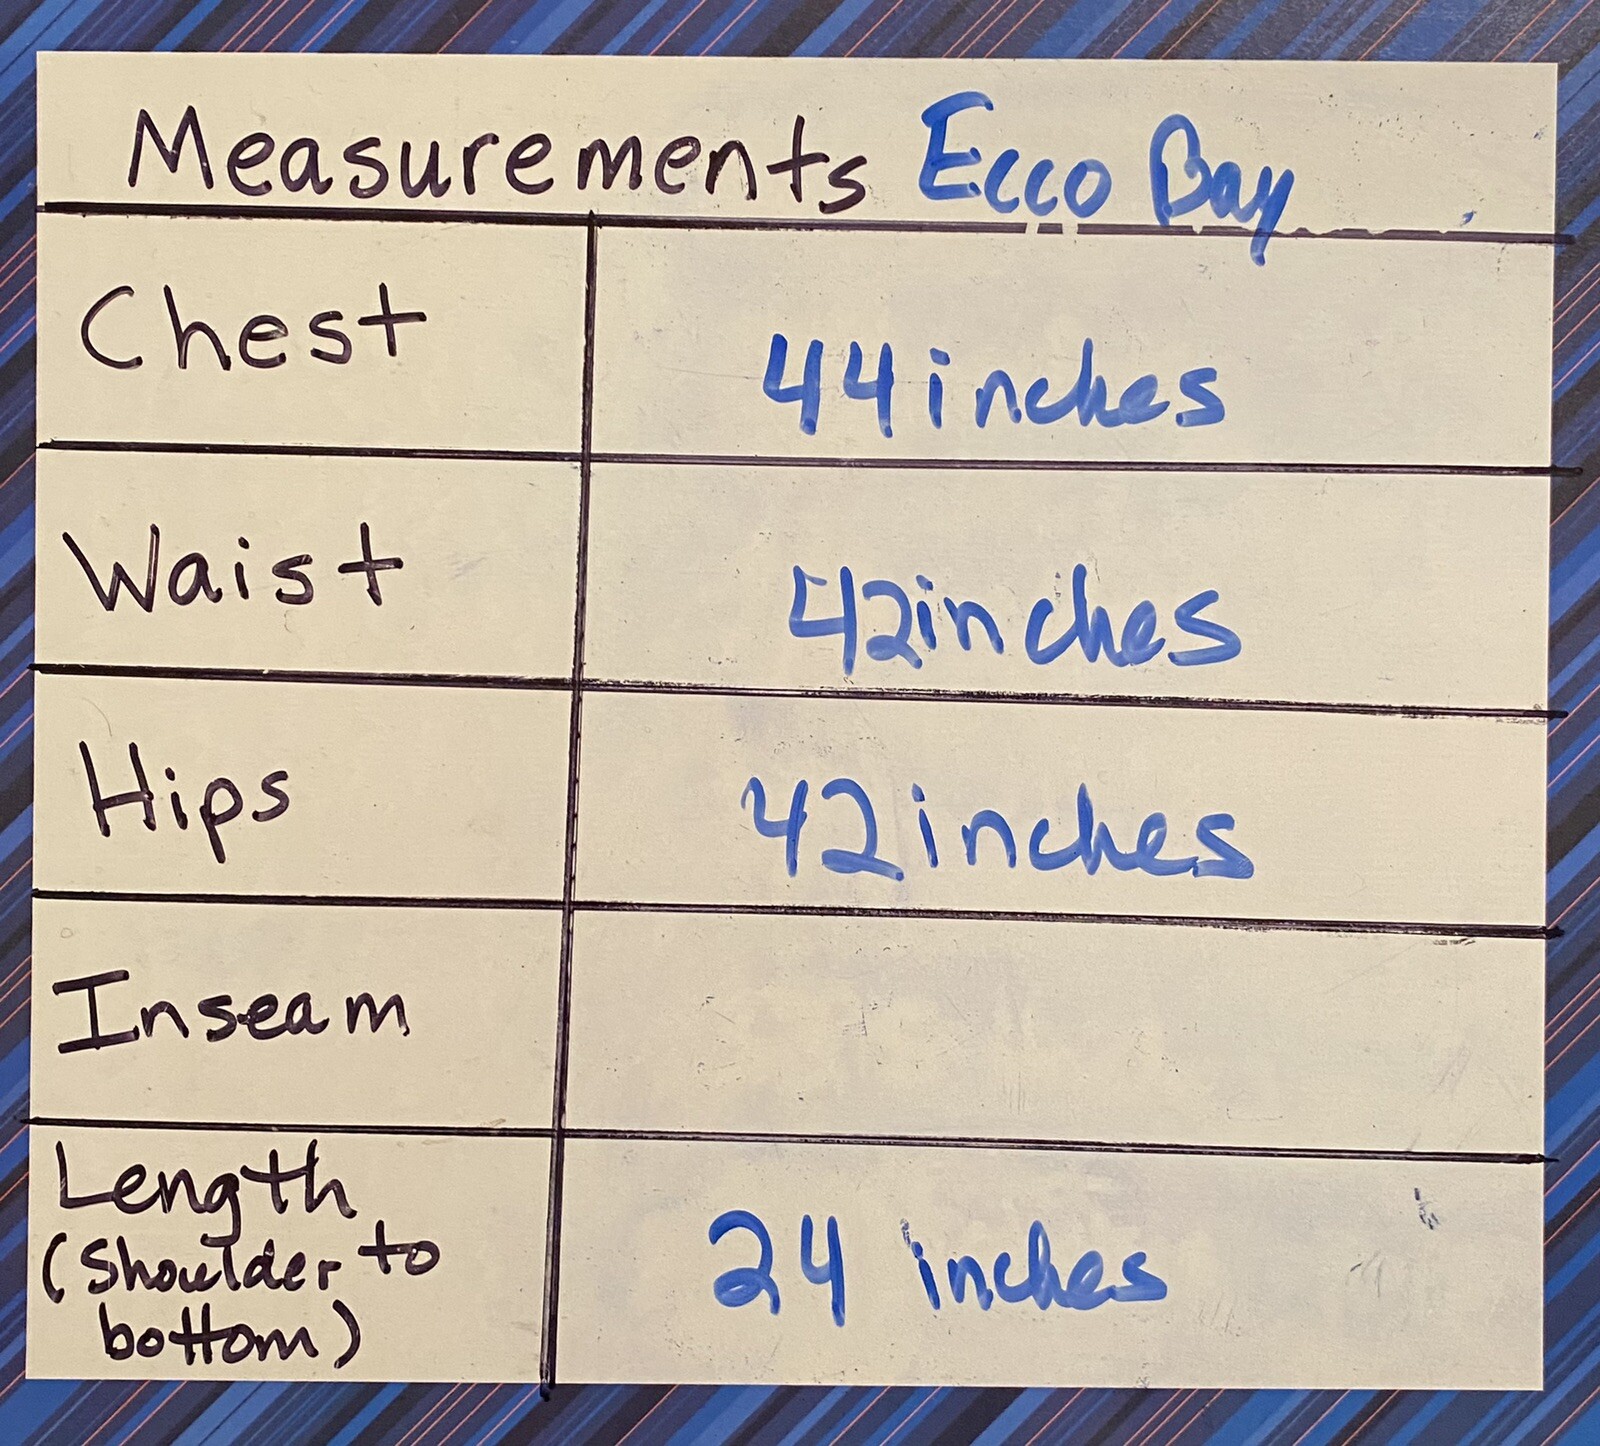 Measurements Ecco Bay
Chest
44 inches
Waist
42 inches
Hips
42 inches
Inseam
Length
(Shoulder to
bottom)
24 inches